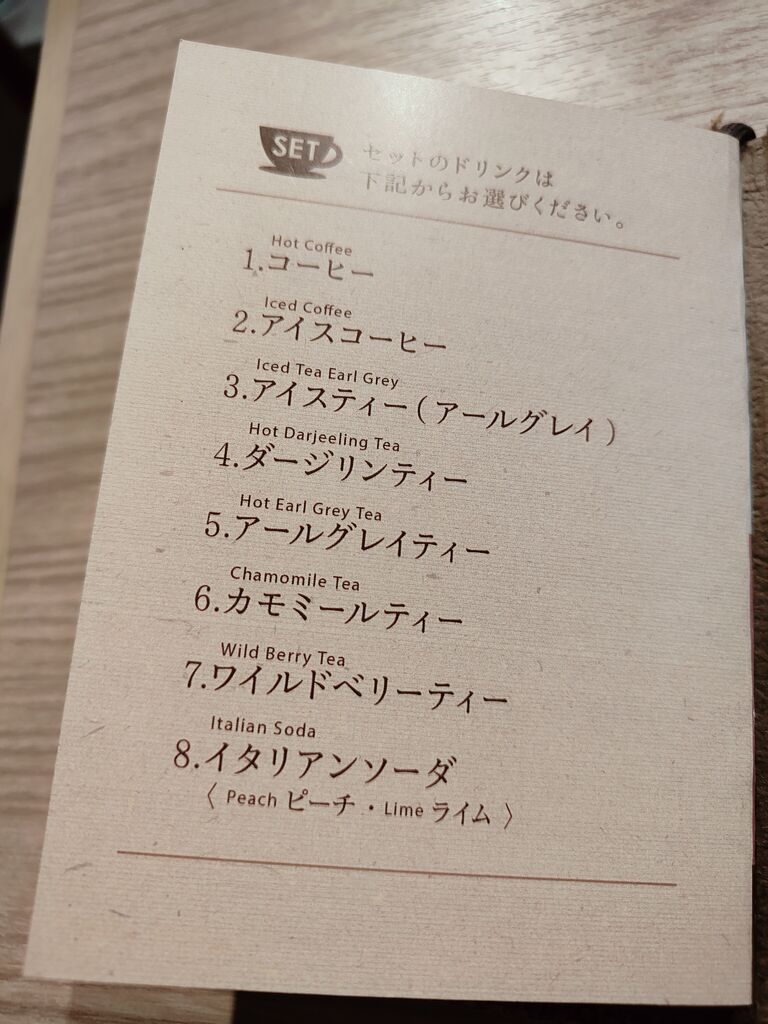 SET
セットのドリンクは
下記からお選びください。
Hot Coffee
1.コーヒー
Iced Coffee
2.アイスコーヒー
Iced Tea Earl Grey
3.アイスティー(アールグレイ)
Hot Darjeeling Tea
4.ダージリンティー
Hot Earl Grey Tea
5.アールグレイティー
Chamomile Tea
6.カモミールティー
Wild Berry Tea
7.ワイルドベリーティー
Italian Soda
8.イタリアンソーダ
〈 Peach ピーチ・Lime ライム 〉